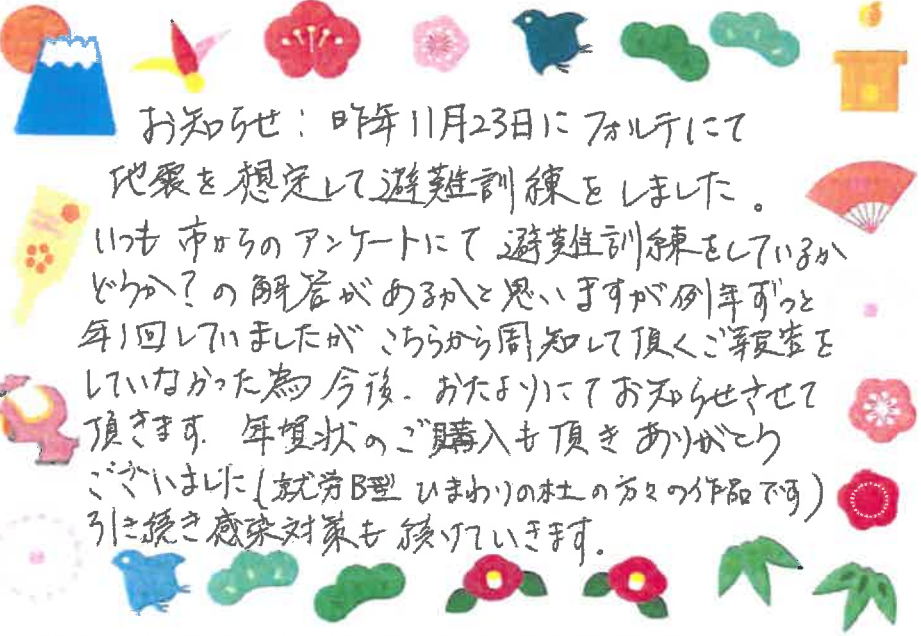 お知らせ：昨年11月23日にフォルテにて
地震を想定して避難訓練をしました。
いつも市からのアンケートにて避難訓練をしているか
どうか？の解答があるかと思いますが例年ずっと
年1回していましたがこちらから周知して頂くご報告を
していなかった為今後、おたよりにてお知らせさせて
頂きます。年賀状のご購入も頂きありがとう
ございました(就労B型ひまわりの杜の方々の作品です)
引き続き感染対策も続けていきます。